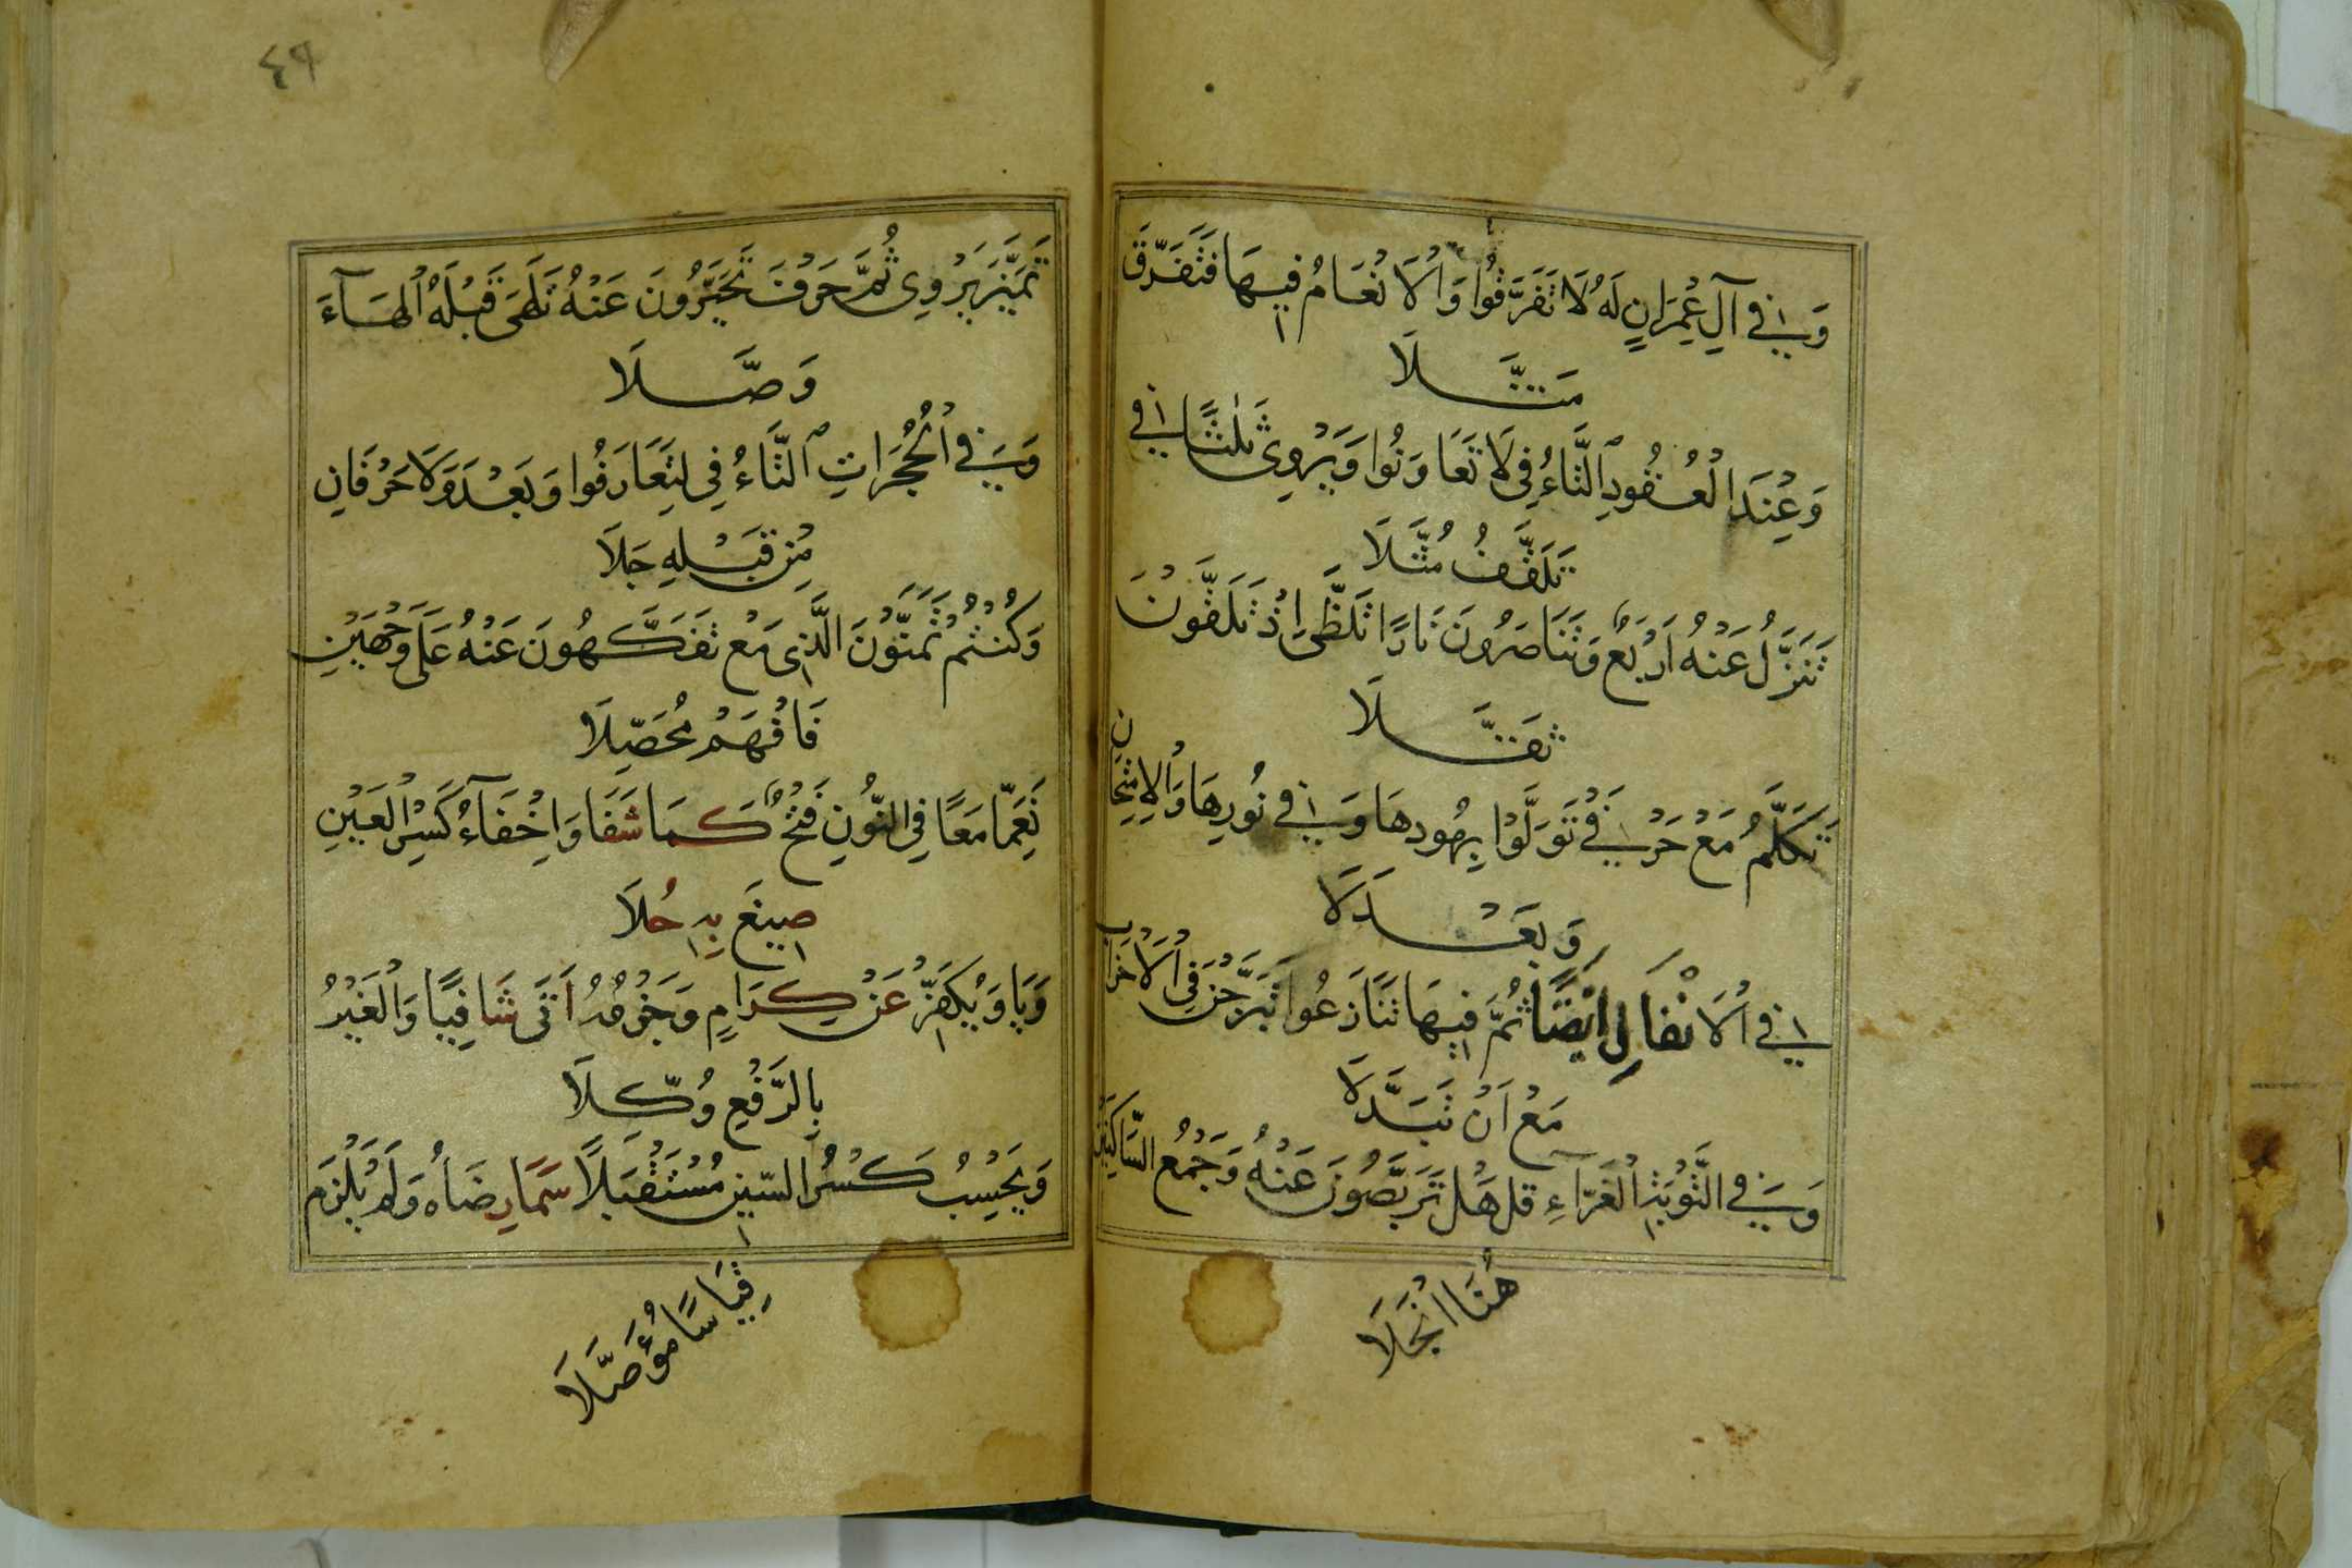 وَفِي آلِ عِمْرَانٍ لَهُ لَا تَفَرَّقُوا وَالْأَنْعَامُ فِيهَا فَتَفَرَّقَ
مَثَّلَا
وَعِنْدَ الْعُقُودِ التَّاءُ فِي لَا تَعَاوَنُوا وَيَرْوِي ثَلٰثًا فِي
تَلَقَّفُ مُثَّلَا
تَنَزَّلُ عَنْهُ أَرْبَعٌ وَتَنَاصَرُونَ نَارًا تَلَظَّى إِذْ تَلَقَّوْنَ
ثُقَّلَا
تَكَلَّمُ مَعْ حَرْفَيْ تَوَلَّوْا بِهُودِهَا وَفِي نُورِهَا وَالْإِمْتِحَانِ
وَبَعْدَلَا
فِي الْأَنْفَالِ أَيْضًا ثُمَّ فِيهَا تَنَازَعُوا تَبَرَّجْنَ فِي الْأَحْزَابِ
مَعْ أَنْ تَبَدَّلَا
وَفِي التَّوْبَةِ الْغَرَّاءِ قل هَلْ تَرَبَّصُونَ عَنْهُ وَجَمْعُ السَّاكِنَيْنِ
هُنَا انْجَلَا
٤٩
تَمَيَّزُ يَرْوِي ثُمَّ حَرْفَ تَخَيَّرُونَ عَنْهُ تَلَهَّى قَبْلَهُ الْهَآءَ
وَصَّلَا
وَفِي الْحُجُرَاتِ التَّاءُ فِي لِتَعَارَفُوا وَبَعْدَ وَلَا حَرْفَانِ
مِنْ قَبْلِهِ جَلَا
وَكُنْتُمْ تَمَنَّوْنَ الَّذِي مَعْ تَفَكَّهُونَ عَنْهُ عَلَى وَجْهَيْنِ
فَافْهَمْ مُحَصِّلَا
نَعِمَّا مَعًا فِي النُّونِ فَتْحٌ كَمَا شَفَا وَإِخْفَآءُ كَسْرِ الْعَيْنِ
صِيغَ بِهِ حُلَا
وَيَا وَيُكَفِّرْ عَنْ كِرَامٍ وَجَزْمُهُ أَتَى شَافِيًا وَالْغَيْرُ
بِالرَّفْعِ وُكِّلَا
وَيَحْسِبُ كَسْرُ السِّينِ مُسْتَقْبَلًا سَمَا رِضَاهُ وَلَمْ يَلْزَمْ
قِيَاسًا مُؤَصَّلَا